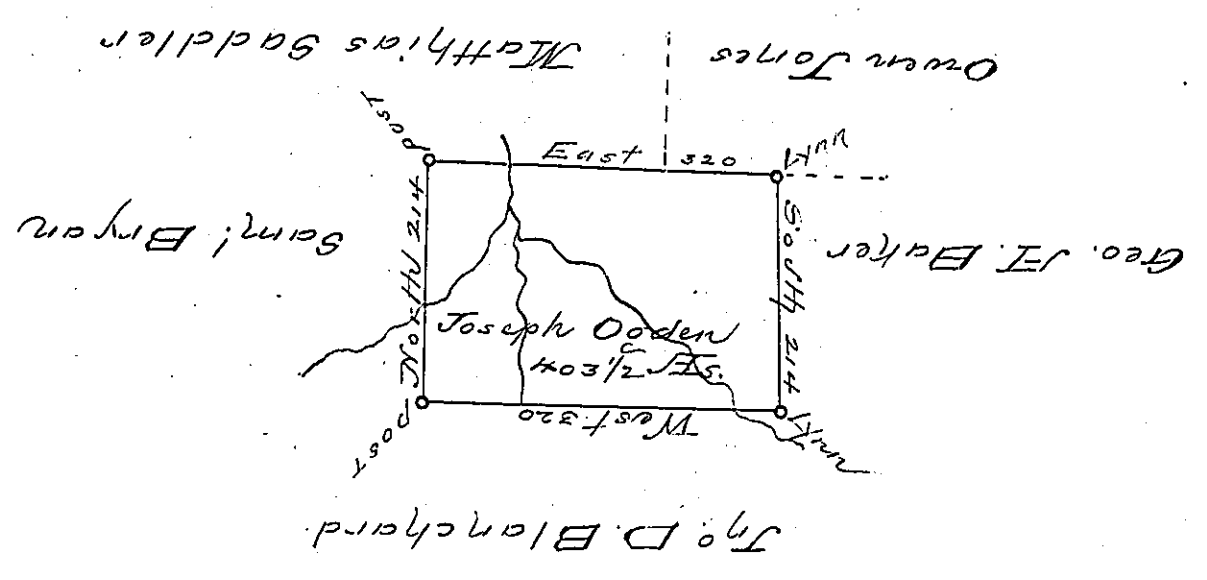 Matthias Saddler
Owen Jones
post
East 320
Sam! Bryan
North 214
South 214
Geo. A. Baker
Joseph Ogden
403 1/2 As.
West 320
post
Jno. D. Blanchard.